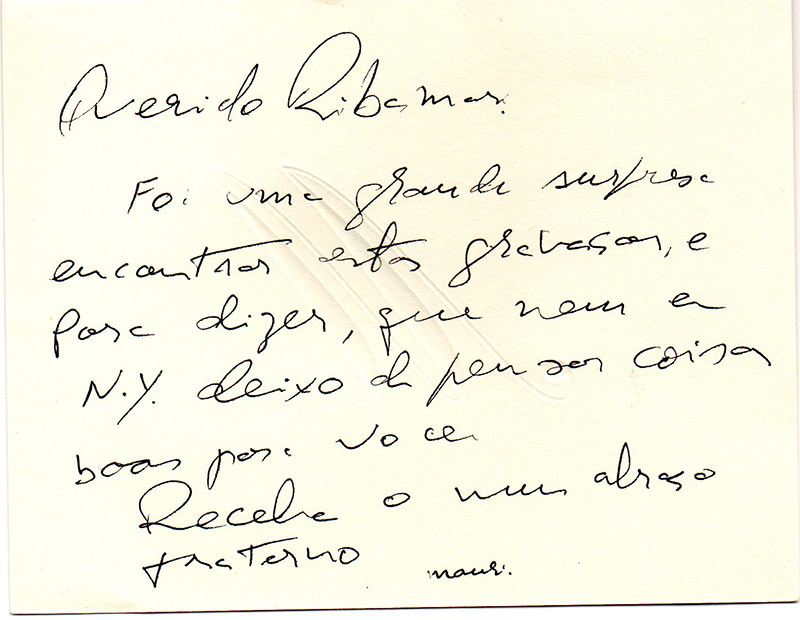 Querido Ribamar.
Foi uma grande surpresa
encontrar estas gravações, e
para dizer, que nem em
N.Y. deixo de pensar coisas
boas para você.
Receba o meu abraço
fraterno mauri.